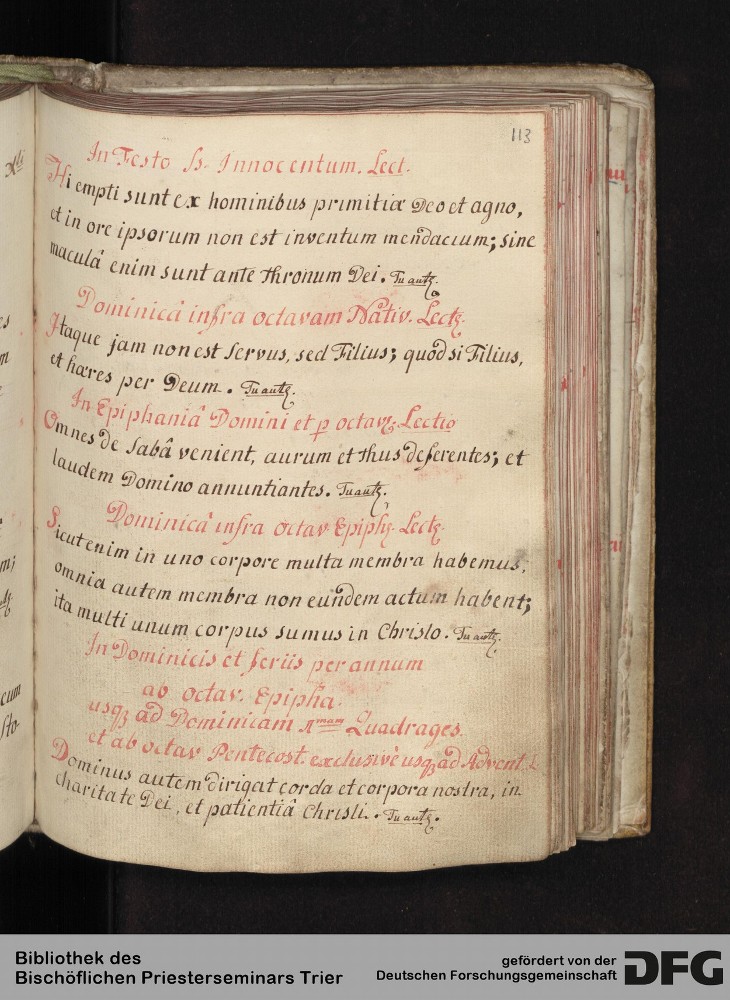 113
In Festo SS. Innocentum. Lect.
Hi empti sunt ex hominibus primitiæ Deo et agno,
et in ore ipsorum non est inventum mendacium; sine
maculâ enim sunt ante thronum Dei. Tu autẽ.
Dominicâ infra octavam Nativ. Lectẽ.
Itaque jam non est servus, sed Filius; quod si Filius,
et hæres per Deum. Tu autẽ.
In Epiphaniâ Domini et p octavẽ. Lectio
Omnes de Sabâ venient, aurum et thus deferentes; et
laudem Domino annuntiantes. Tu autẽ.
Dominicâ infra octav Epiphẽ. Lectẽ.
Sicut enim in uno corpore multa membra habemus,
omnia autem membra non eundem actum habent;
ita multi unum corpus sumus in Christo. Tu autẽ.
In Dominicis et feriis per annum
ab octav. Epipha.
usqȝ ad Dominicam 1mam Quadrages.
et ab octav Pentecost. exclusivè usqȝ ad Advent
Dominus autem dirigat corda et corpora nostra, in
charitate Dei, et patientiâ Christi. Tu autẽ.
Bibliothek des
Bischöflichen Priesterseminars Trier
gefördert von der
Deutschen Forschungsgemeinschaft
DFG